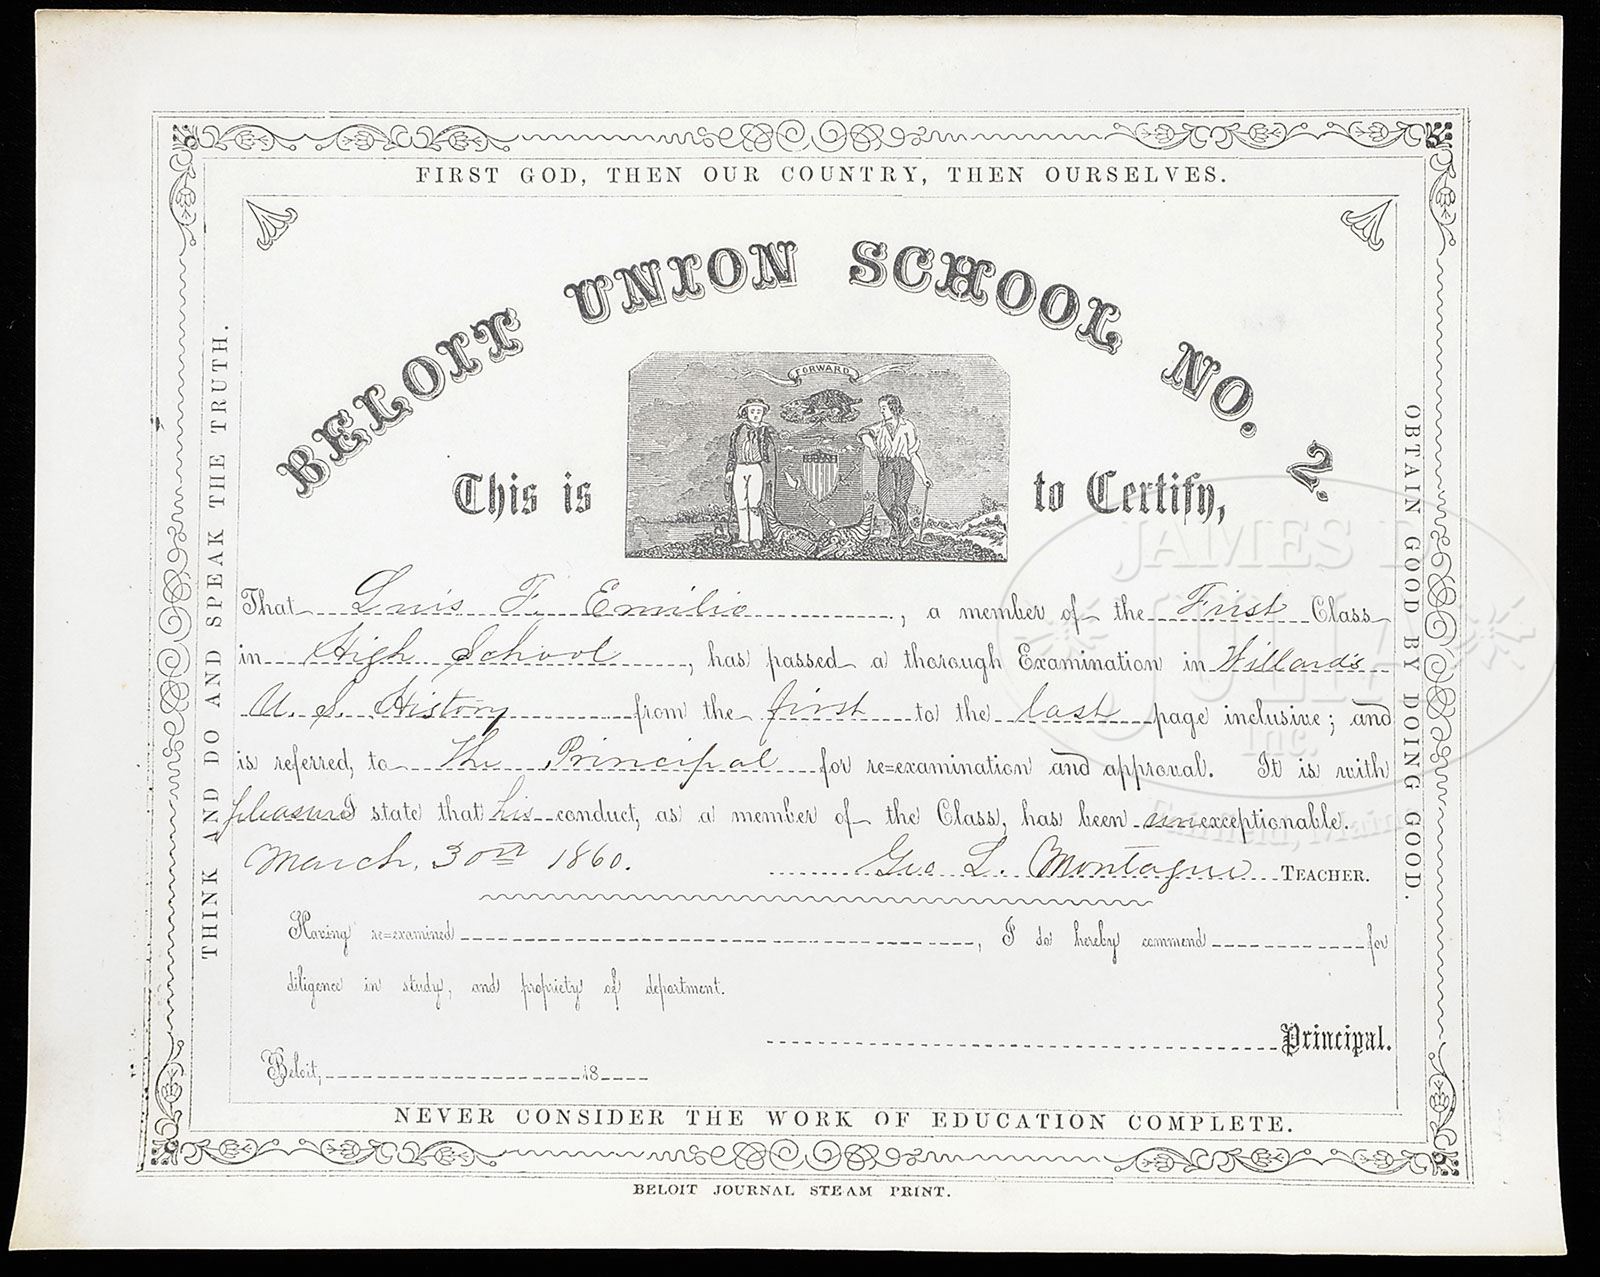 FIRST GOD, THEN OUR COUNTRY, THEN OURSELVES.
BELOIT UNION SCHOOL NO. 2.
FORWARD
This is to Certify,
That Luis F. Emilio, a member of the First Class
in High School, has passed a thorough Examination in Willard's
U. S. History from the first to the last page inclusive; and
is referred, to The Principal for re=examination and approval. It is with
pleasure I state that his conduct, as a member of the Class, has been unexceptionable.
March, 30th 1860. Geo L. Montague TEACHER.
Having re=examined, I do hereby commend for
diligence in study, and propriety of department.
Principal.
Beloit, 18
NEVER CONSIDER THE WORK OF EDUCATION COMPLETE.
THINK AND DO AND SPEAK THE TRUTH.
OBTAIN GOOD BY DOING GOOD.
BELOIT JOURNAL STEAM PRINT.
JAMES D.
JULIA
Inc.
Fairfield, Maine